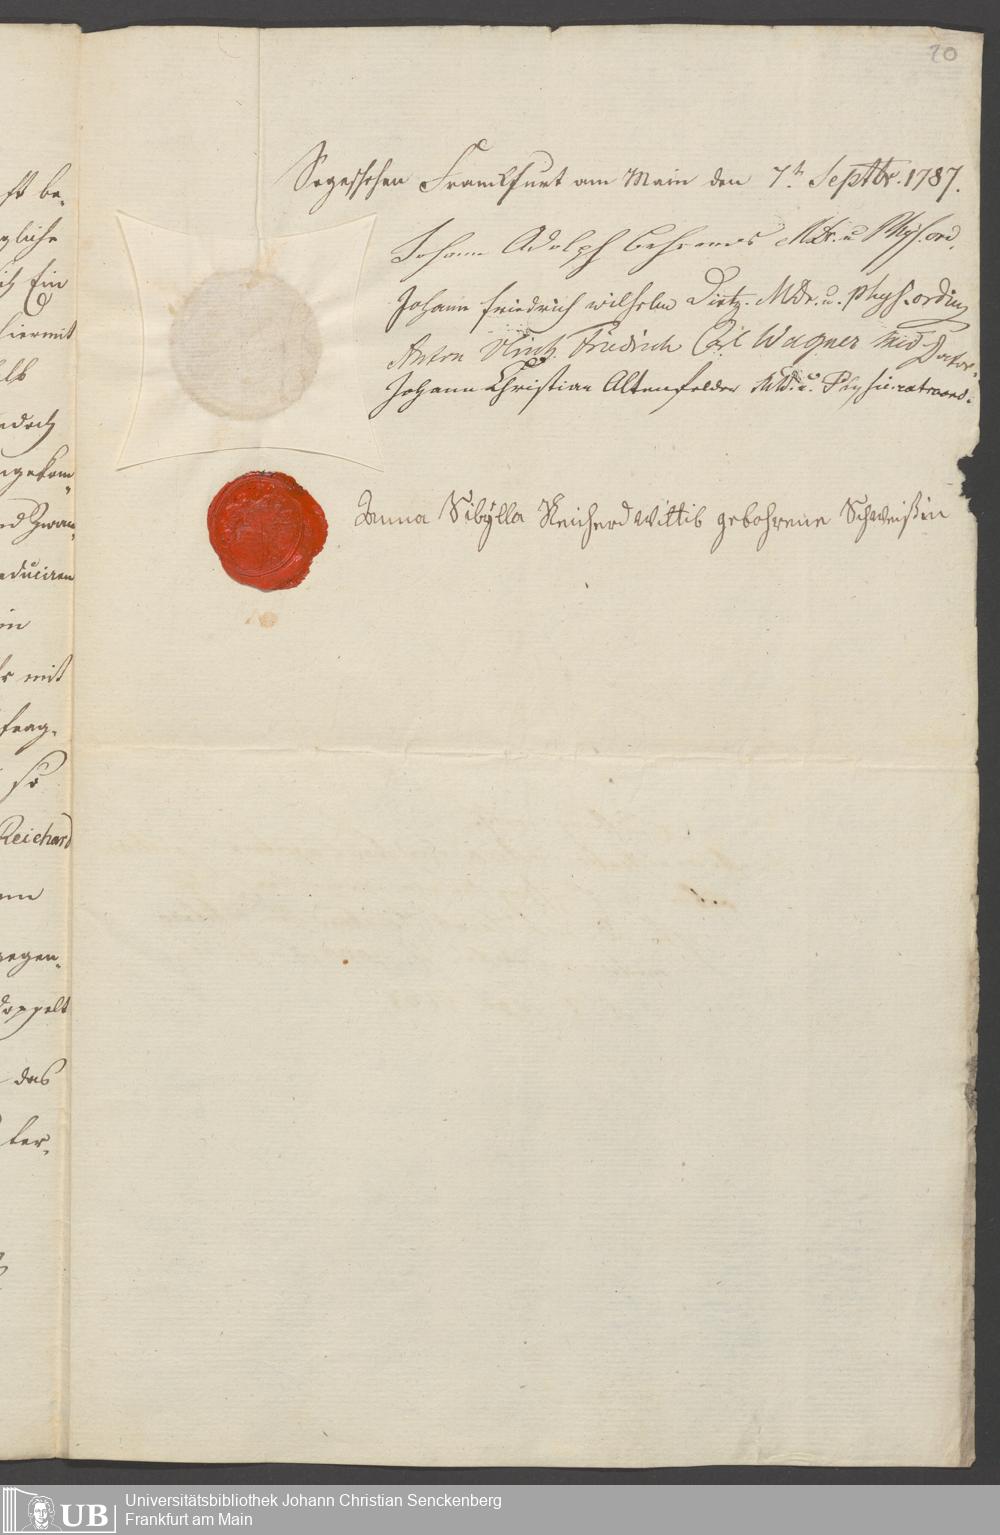 20
So geschehen Franckfurt am Main den 7.th Septbr. 1787.
Johann Adolph Behrends MDr. u Phys. ord.
Johann Friedrich Wilhelm Dietz. MDr. u. Phys. ordin
Anton Ulrich Friedrich Carl Wagner Med. Doctor.
Johann Christian Altenfelder MD. u. Physic. extraord.
Anna Sibÿlla Reicherd Wittib gebohrene Schweißin
be„
gliche
Ein
hiermit
jedoch
und Zwan„
mit
frag„
so
Reichard
gegen„
doppelt
das
ter„
UB Universitätsbibliothek Johann Christian Senckenberg
Frankfurt am Main